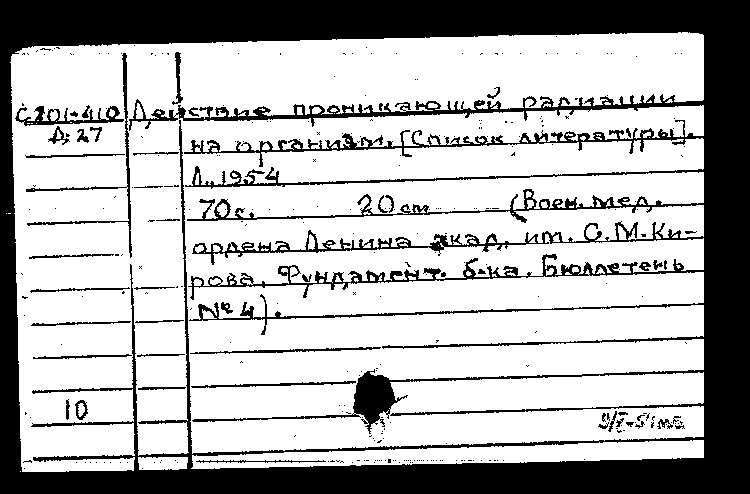 С201-410 Действие проникающей радиации
Д:27 на организм. [Список литературы].
Л., 1954
70с. 20 см (Воен. мед.
ордена Ленина акад. им. С.М.Ки-
рова. Фундамент. б-ка. Бюллетень
№ 4).
10